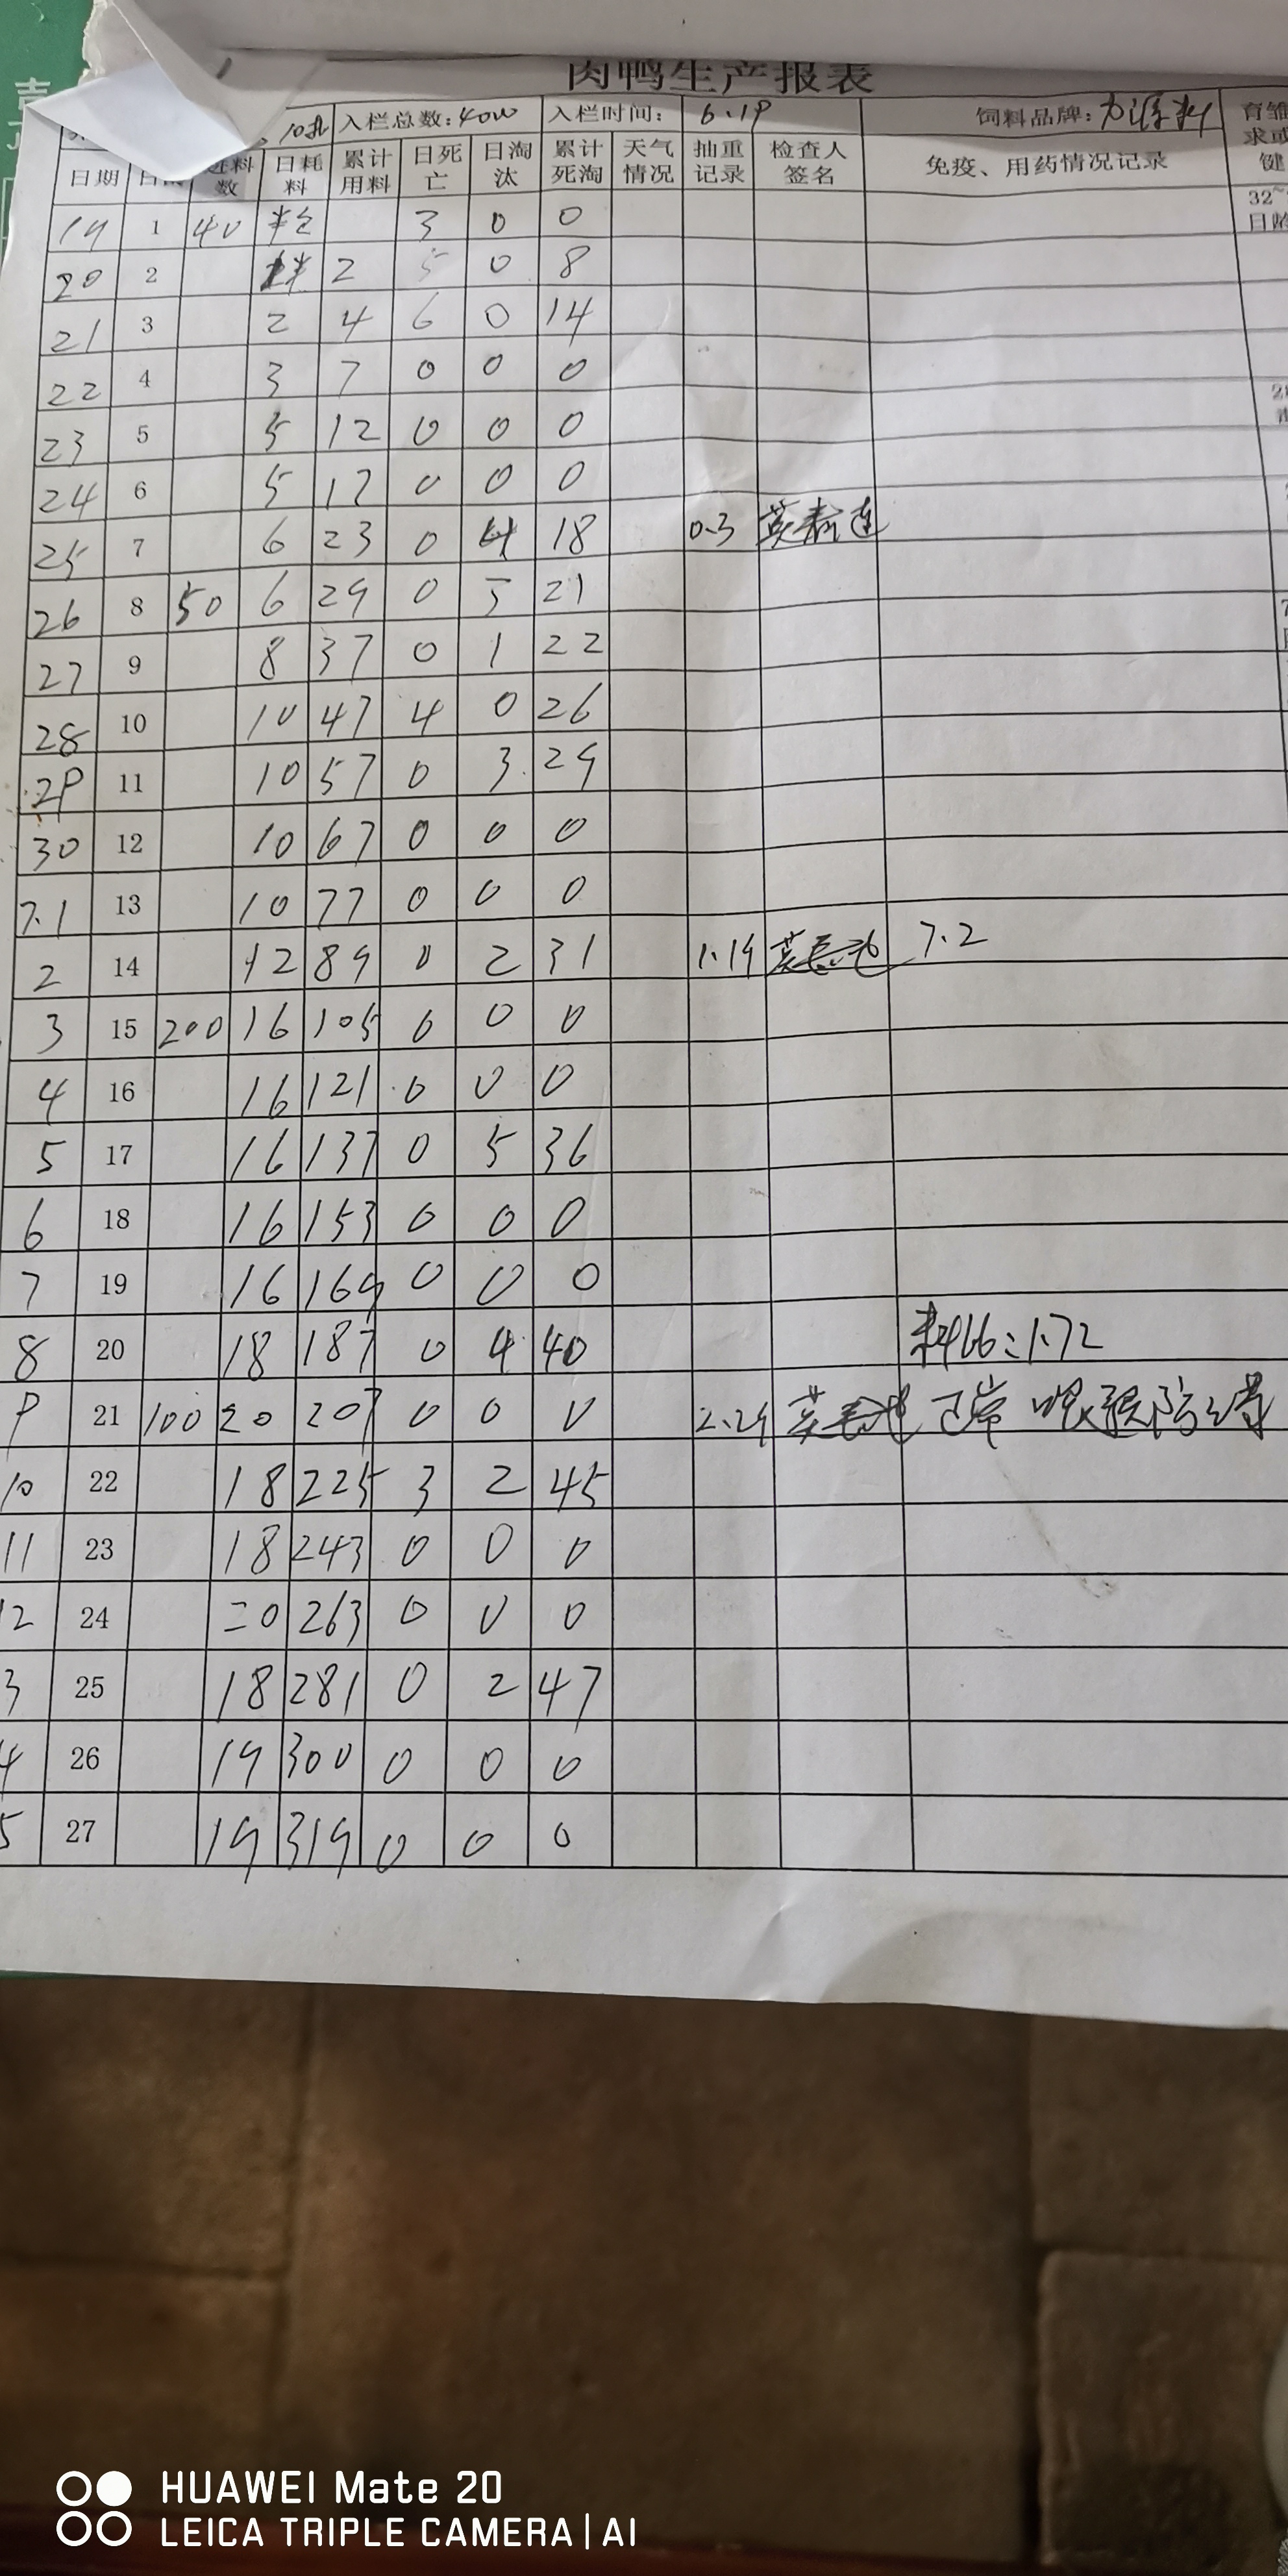 肉鸭生产报表
10批 入栏总数:4000 入栏时间: 6.19 饲料品牌: 育雏
日期 进料数 日耗料 累计用料 日死亡 日淘汰 累计死淘 天气情况 抽重记录 检查人签名 免疫、用药情况记录
19 1 40 半包 3 0 0
20 2 半 2 5 0 8
21 3 2 4 6 0 14
22 4 3 7 0 0 0
23 5 5 12 0 0 0
24 6 5 17 0 0 0
25 7 6 23 0 4 18 0.3
26 8 50 6 29 0 3 21
27 9 8 37 0 1 22
28 10 10 47 4 0 26
29 11 10 57 0 3 29
30 12 10 67 0 0 0
7.1 13 10 77 0 0 0
2 14 12 89 0 2 31 1.19 7.2
3 15 200 16 105 0 0 0
4 16 16 121 0 0 0
5 17 16 137 0 5 36
6 18 16 153 0 0 0
7 19 16 169 0 0 0
8 20 18 187 0 4 40 料比:1.72
9 21 100 20 207 0 0 0 2.29 正常
10 22 18 225 3 2 45
11 23 18 243 0 0 0
12 24 20 263 0 0 0
3 25 18 281 0 2 47
4 26 19 300 0 0 0
5 27 19 319 0 0 0
HUAWEI Mate 20
LEICA TRIPLE CAMERA | AI